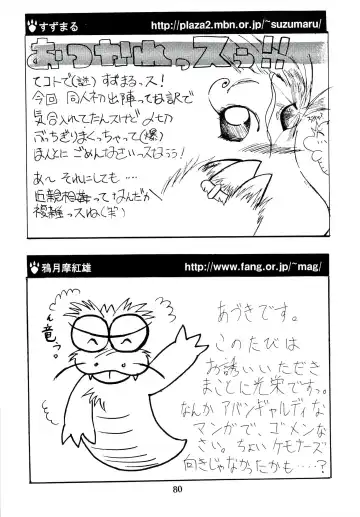 すずまる
http://plaza2.mbn.or.jp/~suzumaru/
おつかれっスぅ!!!
てコトで(謎) すずまるっス!
今回 同人初出陣ってな訳で
気合入れてたんスけど〆切
ぶっちぎりまくっちゃって(爆)
ほんとに ごめんなさいっスなぅぅ!
あ〜 それにしても…
近親相姦ってなんだか
複雑っスね(実)
鴉月摩紅雄
http://www.fang.or.jp/~mag/
竜
あづきです。
このたびは
お誘いいただき
まことに光栄ですっ。
なんかアバンギャルディな
マンガで、ゴメンなさい。
さい。ちょいケモナーズ
向きじゃなかったかも……?
80